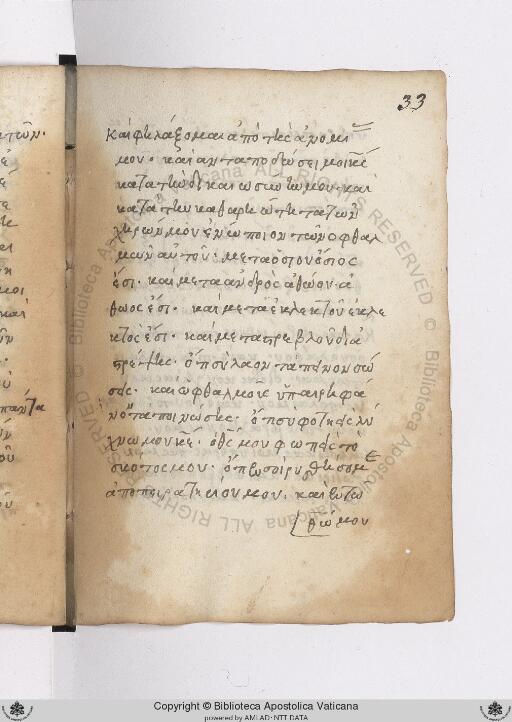 33
καὶ φυλάξομαι ἀπὸ τῆς ἀνομί
μου. καὶ ἀνταποδώσει μοι κς
κατὰ τὴν δικαιωσύνην μου. καὶ
κατὰ τὴν καθαριώτητα τῶν
χειρῶν μου ἐνώπιον τῶν ὀφθαλ
μῶν αὐτοῦ. μετὰ ὁσίου ὅσιος
ἔσι. καὶ μετὰ ἀνδρὸς ἀθώου ἀ
θῶος ἔσι. καὶ μετὰ ἐκλεκτοῦ ἐκλε
κτὸς ἔσι. καὶ μετὰ στρεβλοῦ δια
στρέψεις. ὅτι σὺ λαὸν ταπεινὸν σώ
σεις. καὶ ὀφθαλμοὺς ὑπεριφά
νων ταπεινώσεις. ὅτι σὺ φοτιεῖς λύ
χνον μου κε. ὁ θς μου φωτιεῖς τὸ
σκότος μου. ὅτι ἐν σοὶ ῥυσθήσομε
ἀπὸ πειρατηρίου μου. καὶ ἐν τῶ
θῶ μου
Copyright © Biblioteca Apostolica Vaticana
powered by AMLAD - NTT DATA